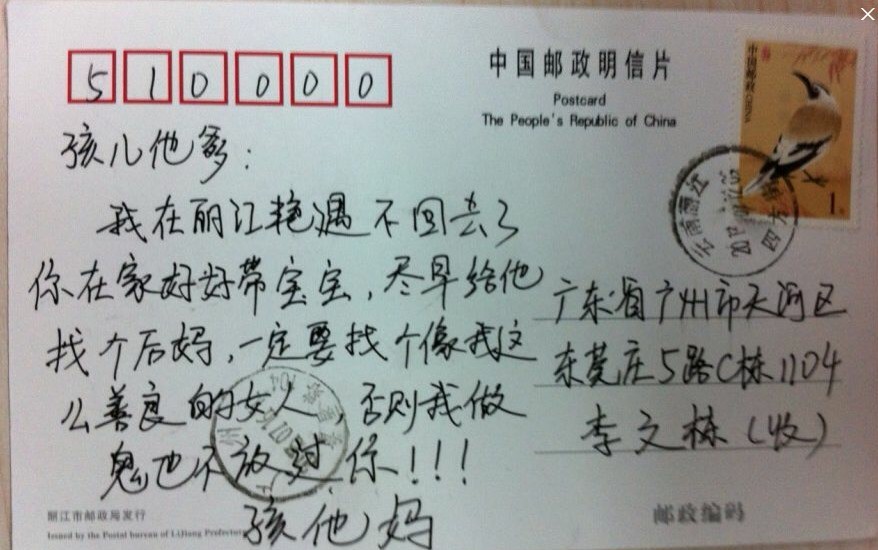 510000
中国邮政明信片
Postcard
The People's Republic of China
中国邮政
1元
云南丽江
孩儿他爹：
我在丽江艳遇不回去了
你在家好好带宝宝，尽早给他
找个后妈，一定要找个像我这
么善良的女人，否则我做
鬼也不放过你！！！
孩他妈
广东省广州市天河区
东莞庄5路C栋1104
李文栋（收）
丽江市邮政局发行
Issued by the Postal bureau of LiJiang Prefecture
邮政编码